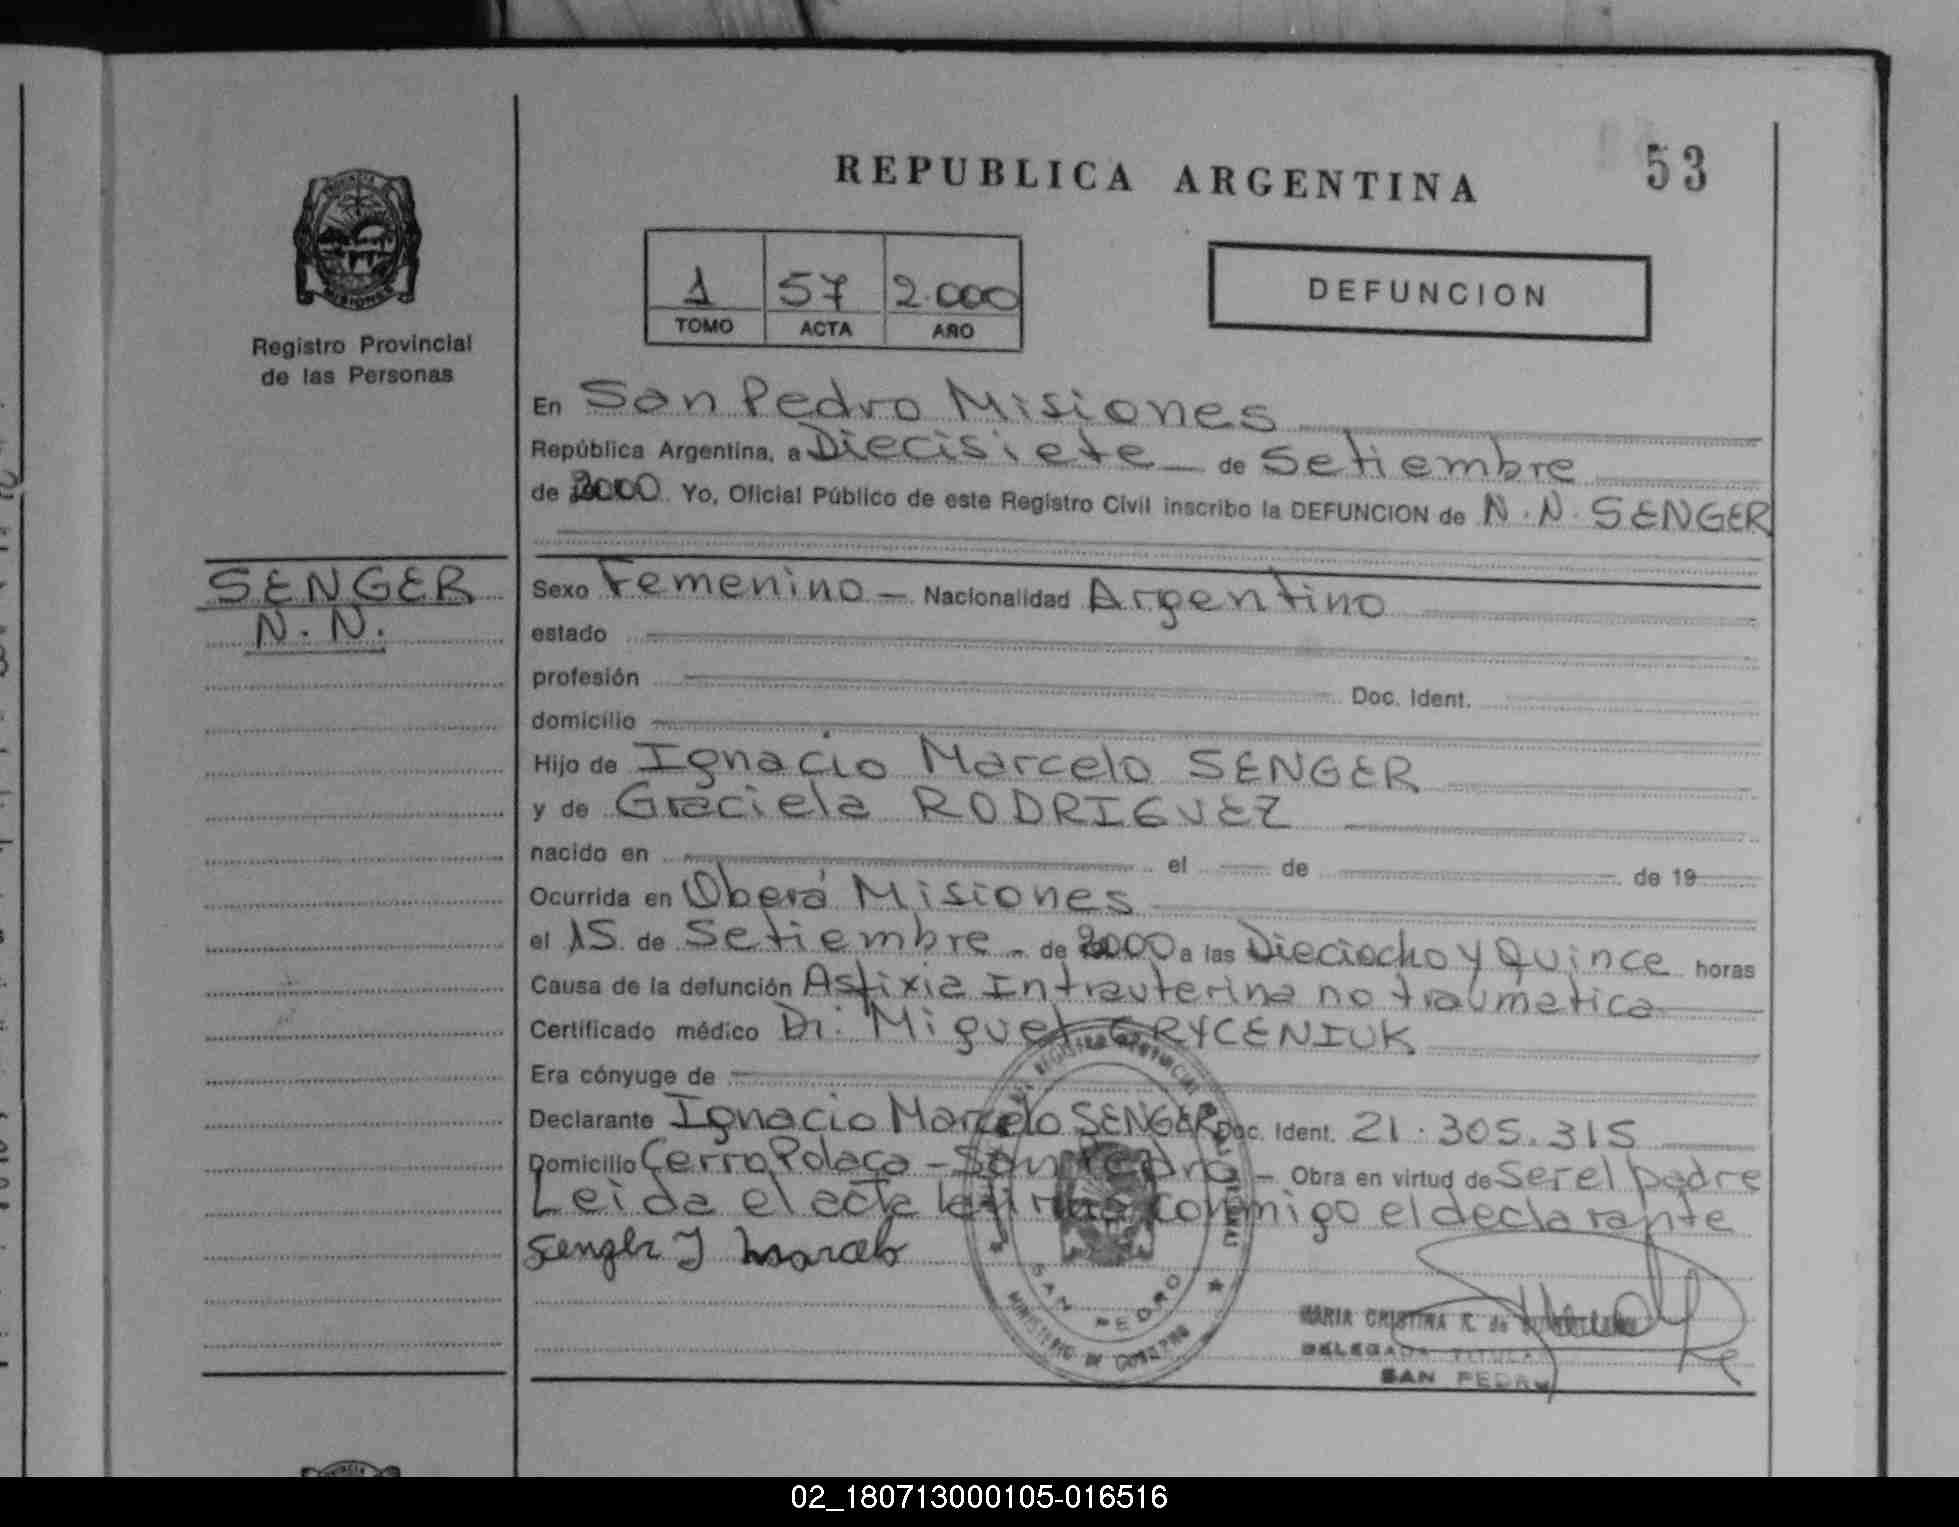 REPUBLICA ARGENTINA
53
1 57 2.000
TOMO ACTA AÑO
DEFUNCION
Registro Provincial
de las Personas
En San Pedro Misiones
República Argentina, a Diecisiete de Setiembre
de 2000 Yo, Oficial Público de este Registro Civil inscribo la DEFUNCION de N.N. SENGER
SENGER
N.N.
Sexo Femenino - Nacionalidad Argentino
estado
profesión Doc. Ident.
domicilio
Hijo de Ignacio Marcelo SENGER
y de Graciela RODRIGUEZ
nacido en el de de 19
Ocurrida en Oberá Misiones
el 15 de Setiembre - de 2000 a las Dieciocho y Quince horas
Causa de la defunción Asfixia Intrauterina no traumatica
Certificado médico Dr: Miguel GRYCENIUK
Era cónyuge de
Declarante Ignacio Marcelo SENGER Doc. Ident. 21.305.315
Domicilio Cerro Polaca - San Pedro - Obra en virtud de Ser el padre
Leida el acta la firma conmigo el declarante
Senger I Marcelo
SAN PEDRO
MINISTERIO DE GOBIERNO
MARIA CRISTINA R. de
DELEGADA TITULAR
SAN PEDRO
02_180713000105-016516